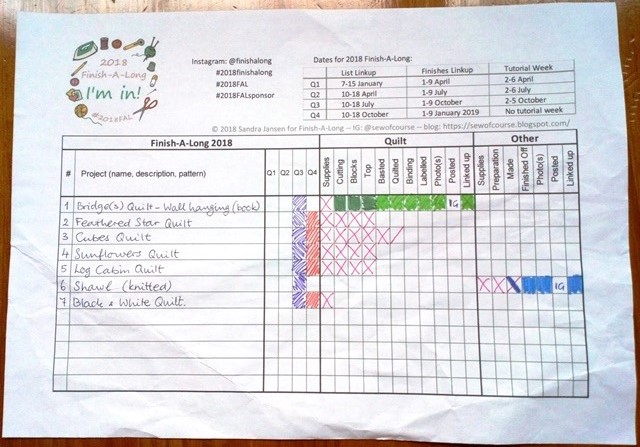 2018
Finish-A-Long
I'm in!
@2018FAL
Instagram: @finishalong
#2018finishalong
#2018FAL
#2018FALsponsor
Dates for 2018 Finish-A-Long:
List Linkup Finishes Linkup Tutorial Week
Q1 7-15 January 1-9 April 2-6 April
Q2 10-18 April 1-9 July 2-6 July
Q3 10-18 July 1-9 October 2-5 October
Q4 10-18 October 1-9 January 2019 No tutorial week
© 2018 Sandra Jansen for Finish-A-Long -- IG: @sewofcourse -- blog: https://sewofcourse.blogspot.com/
Finish-A-Long 2018 Quilt Other
# Project (name, description, pattern) Q1 Q2 Q3 Q4 Supplies Cutting Blocks Top Basted Quilted Binding Labelled Photo(s) Posted Linked up Supplies Preparation Made Finished Off Photo(s) Posted Linked up
1 Bridge(s) Quilt - Wall hanging (book) X IG
2 Feathered Star Quilt X X X X
3 Cubes Quilt X X X X X
4 Sunflowers Quilt X X X X
5 Log Cabin Quilt X X X X
6 Shawl (knitted) X X X IG
7 Black & White Quilt. X